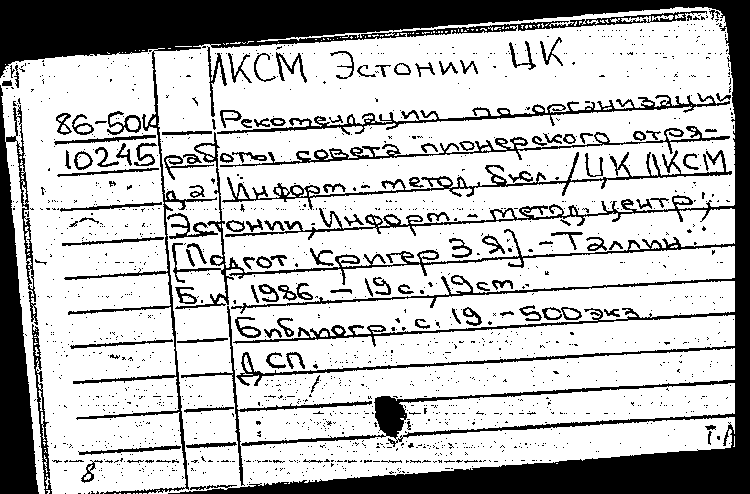 ЛКСМ Эстонии. ЦК.
86-50к Рекомендации по организации
10245 работы совета пионерского отря-
да: Информ.-метод. бюл. / ЦК ЛКСМ
Эстонии, Информ.-метод. центр;
[Подгот. Кригер З.Я.]. - Таллин:
Б.и., 1986. - 19 с.; 19 см.
Библиогр.: с. 19. - 500 экз.
ДСП.
8